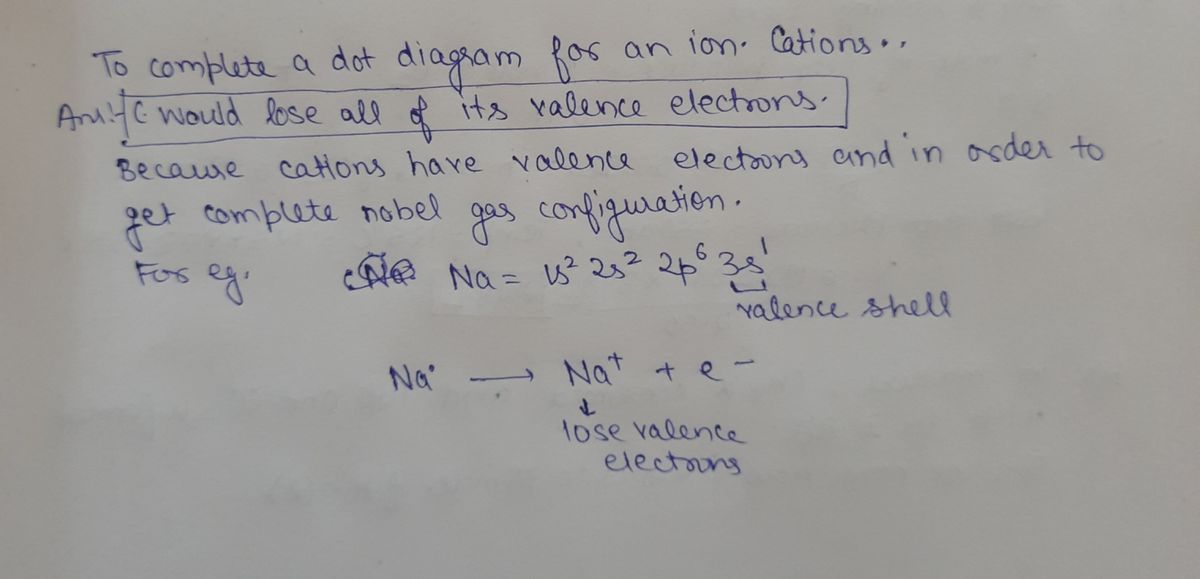 To complete a dot diagram for an ion. Cations..
Ans:- C would lose all of its valence electrons.
Because cations have valence electrons and in order to
get complete nobel gas configuration.
For eg. Na = 1s² 2s² 2p⁶ 3s¹
valence shell
Na• ⟶ Na⁺ + e⁻
↓
lose valence
electrons